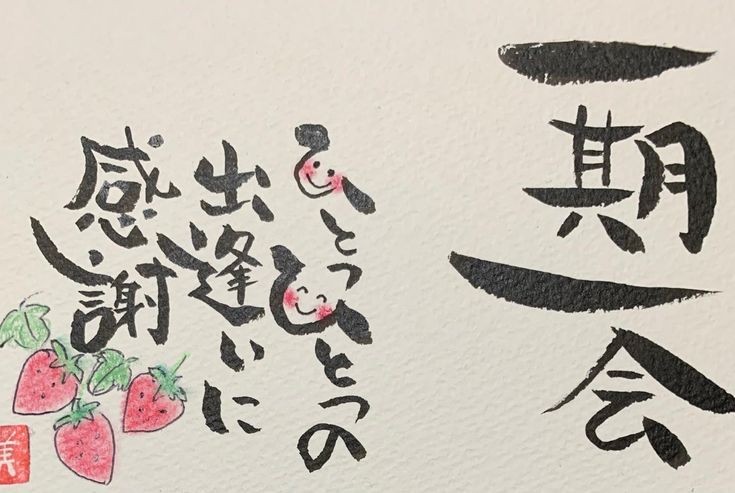 一期一会
ひとつひとつの
出逢いに
感謝
美